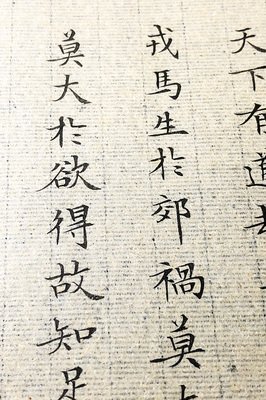 天下有道却
戎馬生於郊禍莫
莫大於欲得故知足